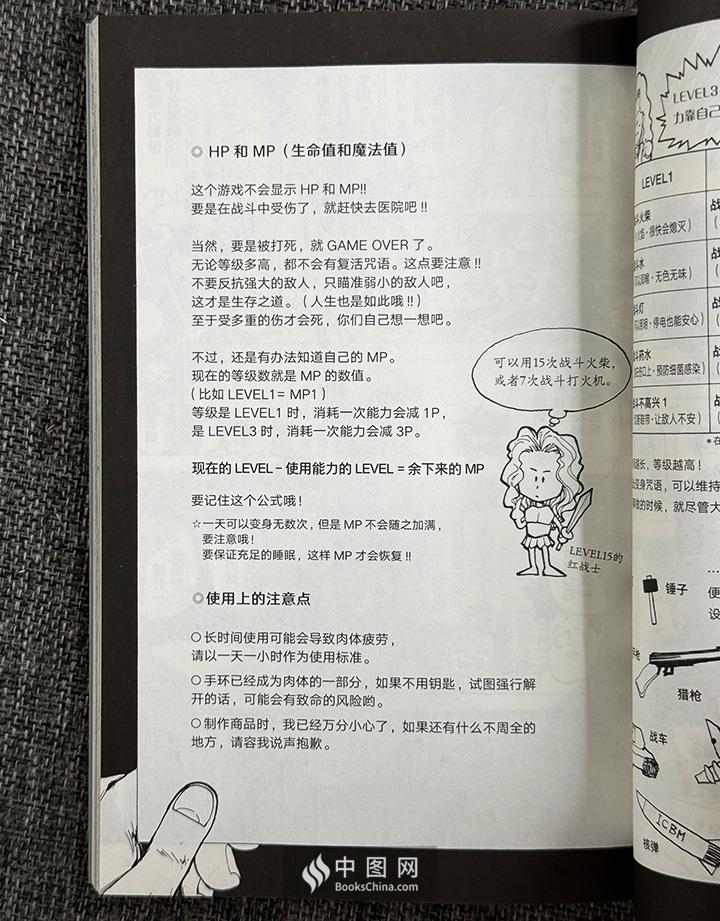 ◎ HP 和 MP（生命值和魔法值）
这个游戏不会显示 HP 和 MP!!
要是在战斗中受伤了，就赶快去医院吧 !!
当然，要是被打死，就 GAME OVER 了。
无论等级多高，都不会有复活咒语。这点要注意 !!
不要反抗强大的敌人，只瞄准弱小的敌人吧，
这才是生存之道。（人生也是如此哦 !!）
至于受多重的伤才会死，你们自己想一想吧。
不过，还是有办法知道自己的 MP。
现在的等级数就是 MP 的数值。
（比如 LEVEL1= MP1）
等级是 LEVEL1 时，消耗一次能力会减 1P，
是 LEVEL3 时，消耗一次能力会减 3P。
现在的 LEVEL – 使用能力的 LEVEL = 余下来的 MP
要记住这个公式哦！
☆一天可以变身无数次，但是 MP 不会随之加满，
要注意哦！
要保证充足的睡眠，这样 MP 才会恢复 !!
可以用15次战斗火柴，
或者7次战斗打火机。
LEVEL15的
红战士
◎使用上的注意点
○长时间使用可能会导致肉体疲劳，
请以一天一小时作为使用标准。
○手环已经成为肉体的一部分，如果不用钥匙，试图强行解
开的话，可能会有致命的风险哟。
○制作商品时，我已经万分小心了，如果还有什么不周全的
地方，请容我说声抱歉。
LEVEL3
力靠自己
LEVEL1
斗火柴
火焰·很快会熄灭）
斗水
可以润喉·无色无味）
斗灯
可以照明·停电也能安心）
斗药水
在伤口上·预防细菌感染）
斗不高兴 1
鞋带·让敌人不安）
*在
越长，等级越高！
变身咒语，可以维持
的时候，就尽管大
锤子
便
设
猎枪
战车
ICBM
核弹
中图网
BooksChina.com